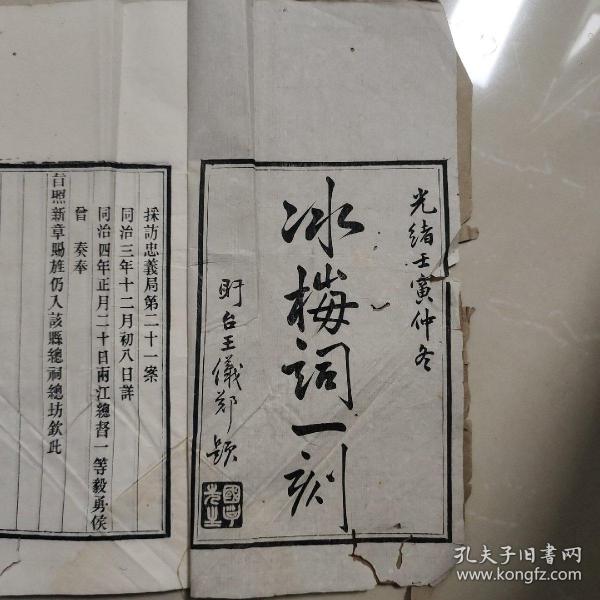 光緒壬寅仲冬
冰梅詞一刻
盱台王儀鄭題
採訪忠義局第二十一案
同治三年十二月初八日詳
同治四年正月二十日兩江總督一等毅勇侯
曾 奏奉
旨照新章賜旌仍入該縣總祠總坊欽此
孔夫子旧书网
www.kongfz.com